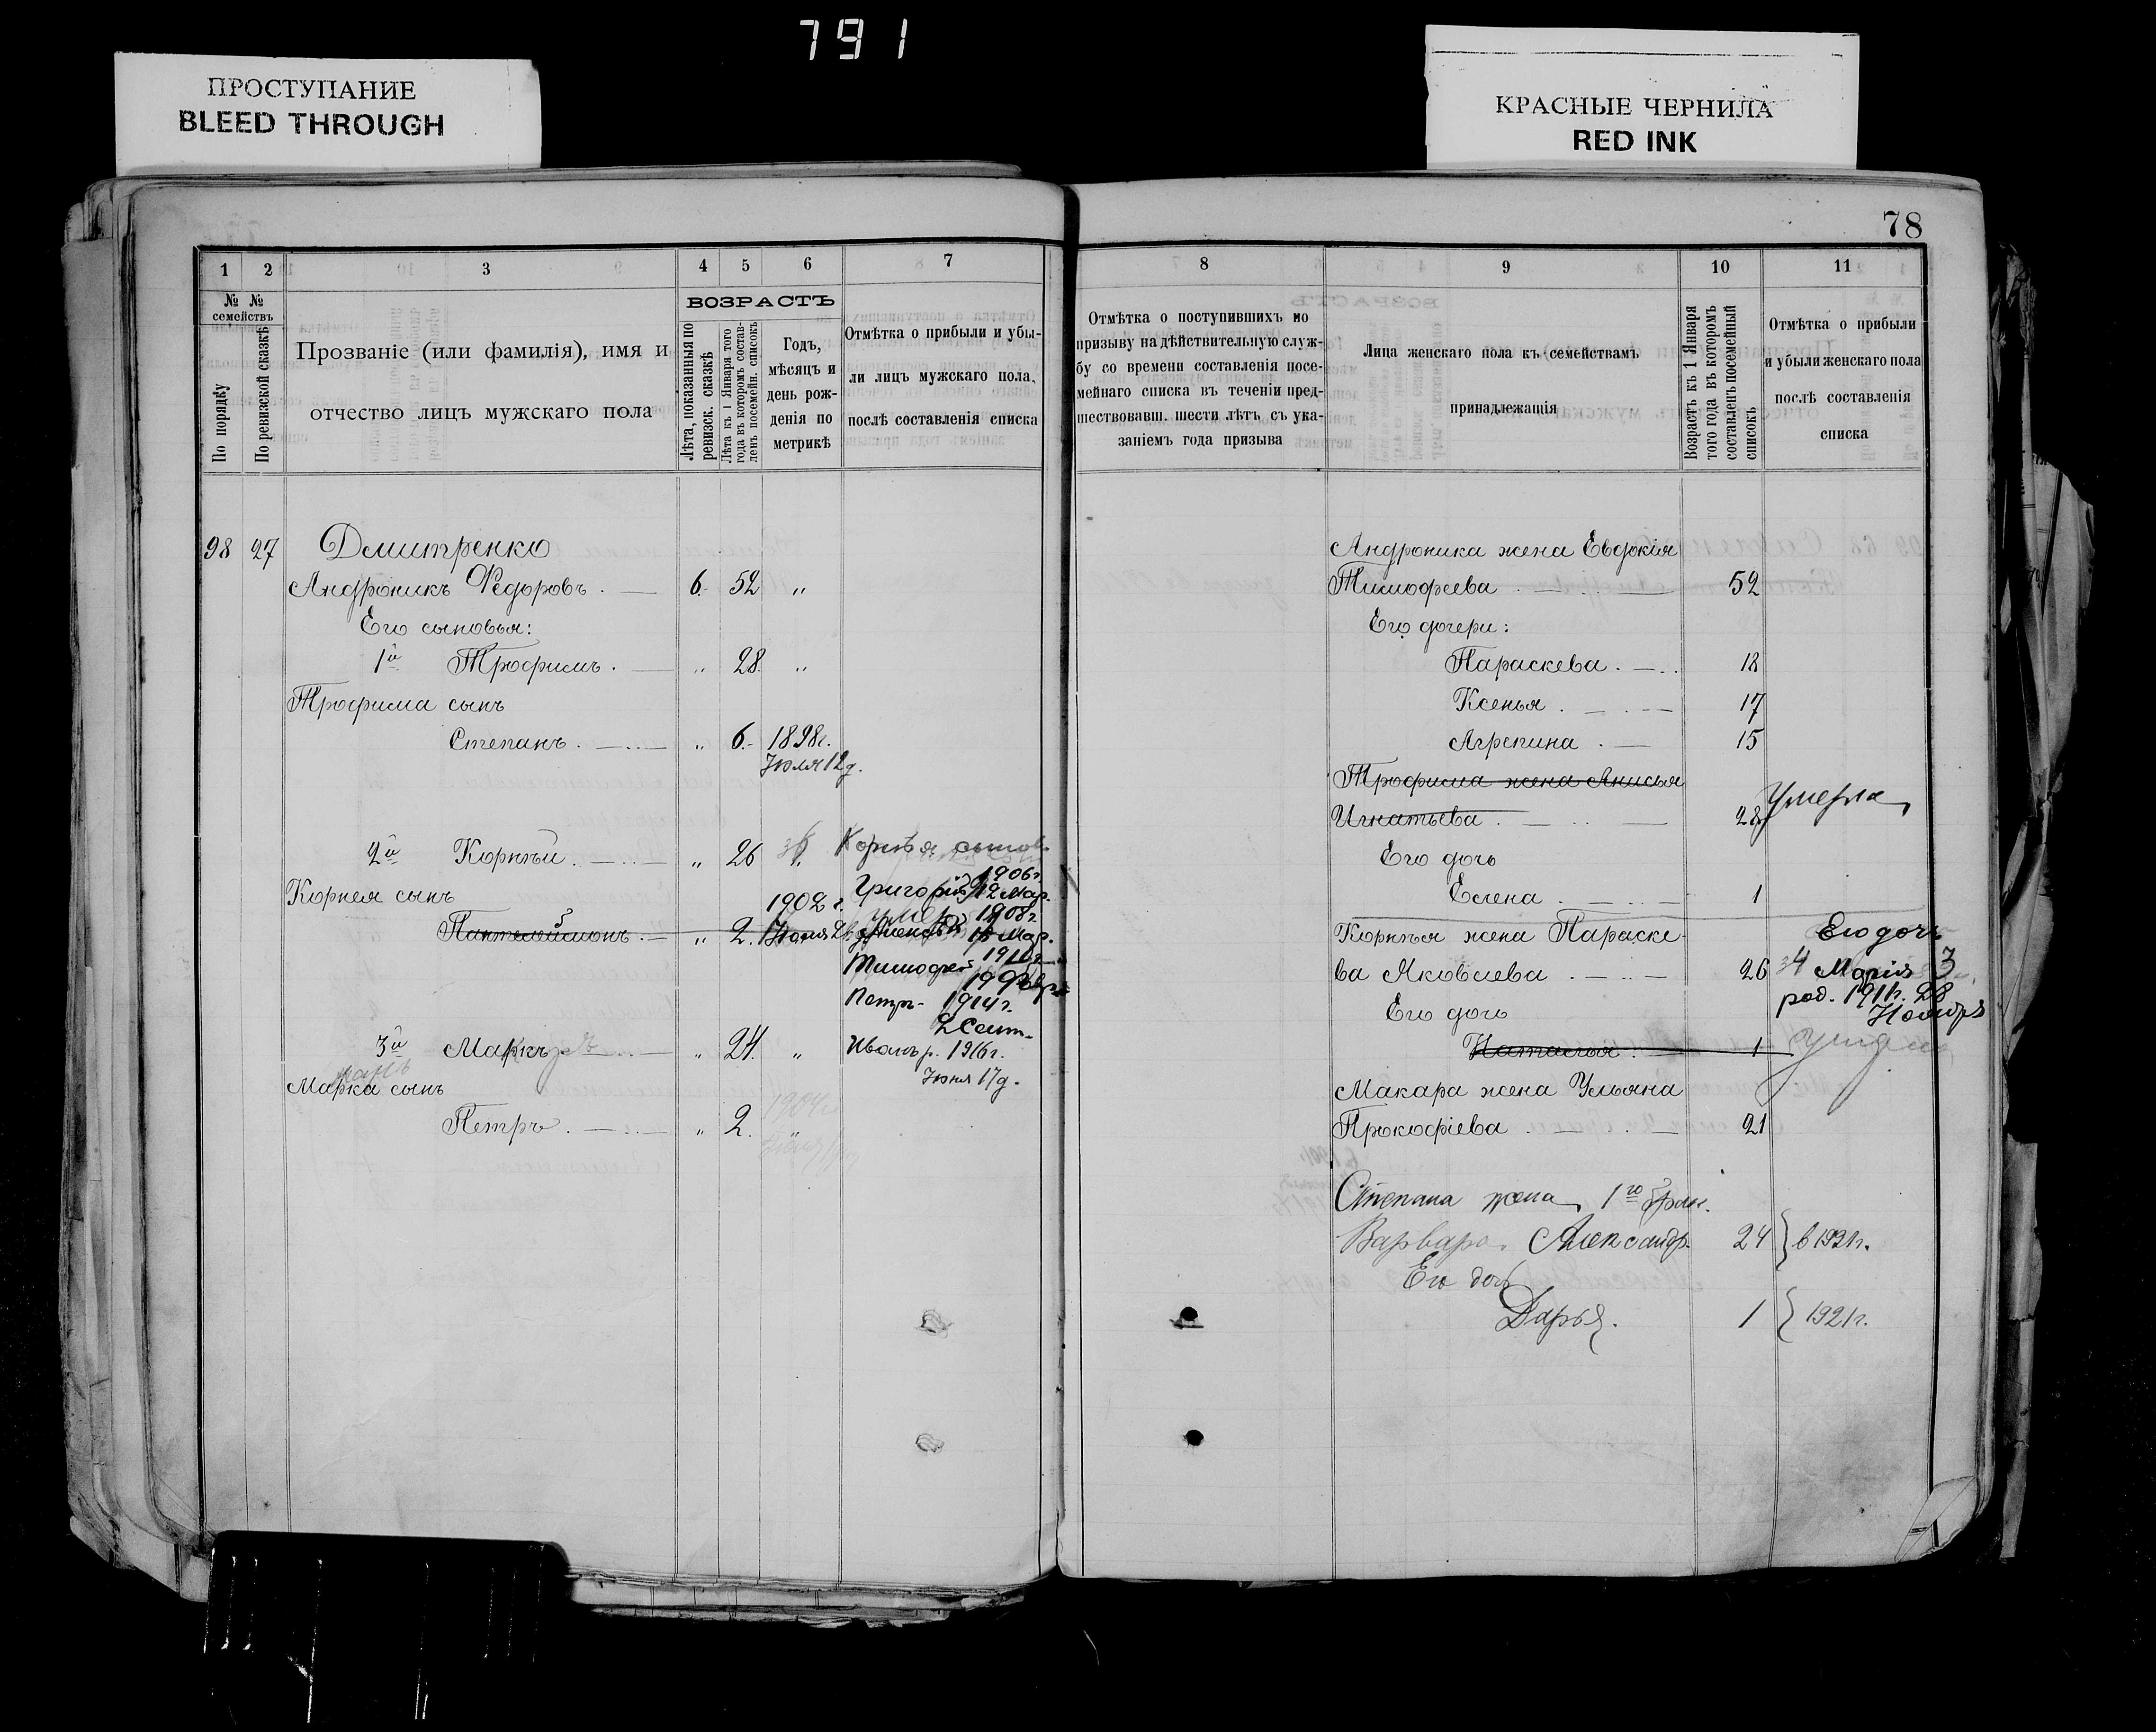 791
ПРОСТУПАНИЕ
BLEED THROUGH
КРАСНЫЕ ЧЕРНИЛА
RED INK
78
1 2 3 4 5 6 7
№ №
семействъ
По порядку
По ревизской сказкѣ
Прозваніе (или фамилія), имя и
отчество лицъ мужскаго пола
ВОЗРАСТЪ
Лѣта, показанныя по
ревизск. сказкѣ
Лѣта къ 1 Января того
года въ которомъ состав-
ленъ посемейн. списокъ
Годъ,
мѣсяцъ и
день рож-
денія по
метрикѣ
Отмѣтка о прибыли и убы-
ли лицъ мужскаго пола,
послѣ составленія списка
98 27 Дмитренко
Андроникъ Ѳедоровъ. — 6. 52 „
Его сыновья:
1й Трофимъ. — „ 28. „
Трофима сынъ
Степанъ. — „ 6. 1898г.
Іюля 12 д.
2й Корнѣй. — „ 26 „ Корнѣя сынов
1906г.
Григорій 12 Мар.
Корнея сынъ 1902 г.
умер 1908 г.
Пантелеймонъ. — „ 2. Іюля
Мар.
Тимофей
Петръ- 1914г.
2 Сент.
3й Маркъ. — „ 24. „ Иванъ р. 1916г.
Іюня 17д.
Марка сынъ
Петръ. — „ 2. „
1904г.
8 9 10 11
Отмѣтка о поступившихъ по
призыву на дѣйствительную служ-
бу со времени составленія посе-
мейнаго списка въ теченіи пред-
шествовавш. шести лѣтъ съ ука-
заніемъ года призыва
Лица женскаго пола къ семействамъ
принадлежащія
Возрастъ къ 1 Января
того года въ которомъ
составленъ посемейный
списокъ
Отмѣтка о прибыли
и убыли женскаго пола
послѣ составленія
списка
Андроника жена Евдокія
Тимофеева. — 52
Его дочери:
Параскева. — 18
Ксенья. — 17
Агрепина. — 15
Трофима жена Анисья
Игнатьева. — 28 Умерла
Его дочь
Елена. — 1
Корнѣя жена Параске-
Его дочь
ва Яковлева. — 26 Марія 3
род. 1911г. 28
Ноября
Его дочь
Наталья. — 1
Макара жена Ульяна
Прокофіева. — 21
Степана жена 1го брак.
Варвара Александр. 24 } в 1921г.
Его дочь
Дарья. 1 } 1921г.